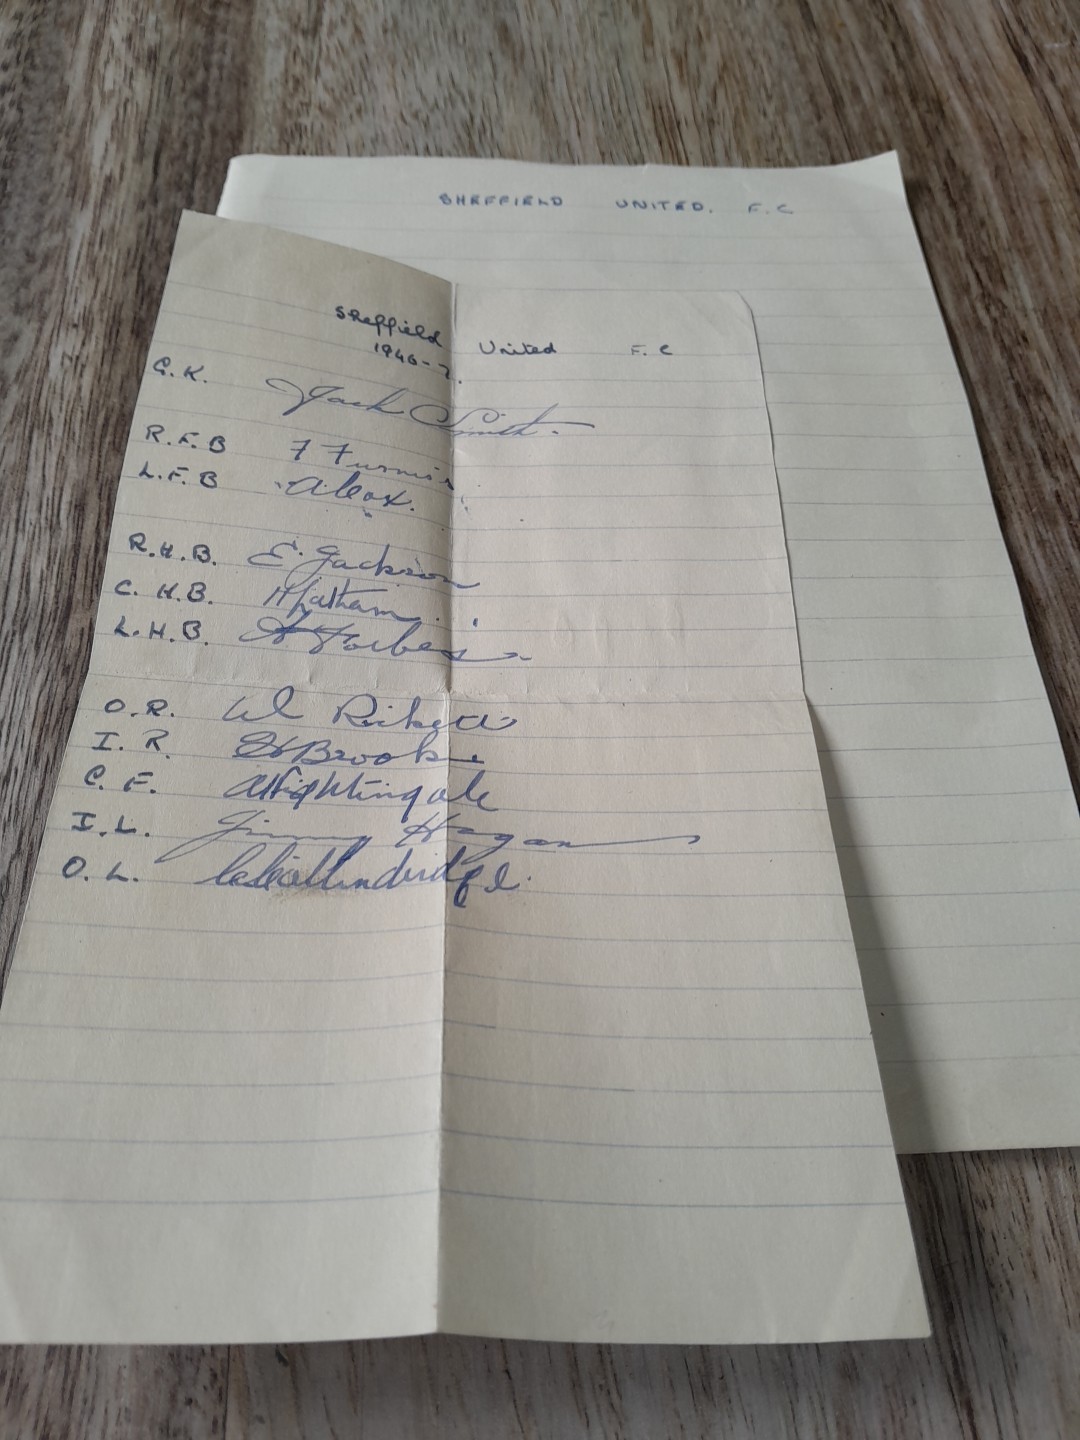 SHEFFIELD UNITED. F.C
Sheffield United F.C
1946-7.
G.K. Jack Smith.
R.F.B F Furniss
L.F.B A Cox.
R.H.B. E. Jackson
C.H.B. H Latham
L.H.B. A Forbes
O.R. W Rickett
I.R. H Brook
C.F. A Nightingale
I.L. Jimmy Hagan
O.L. Collindridge.